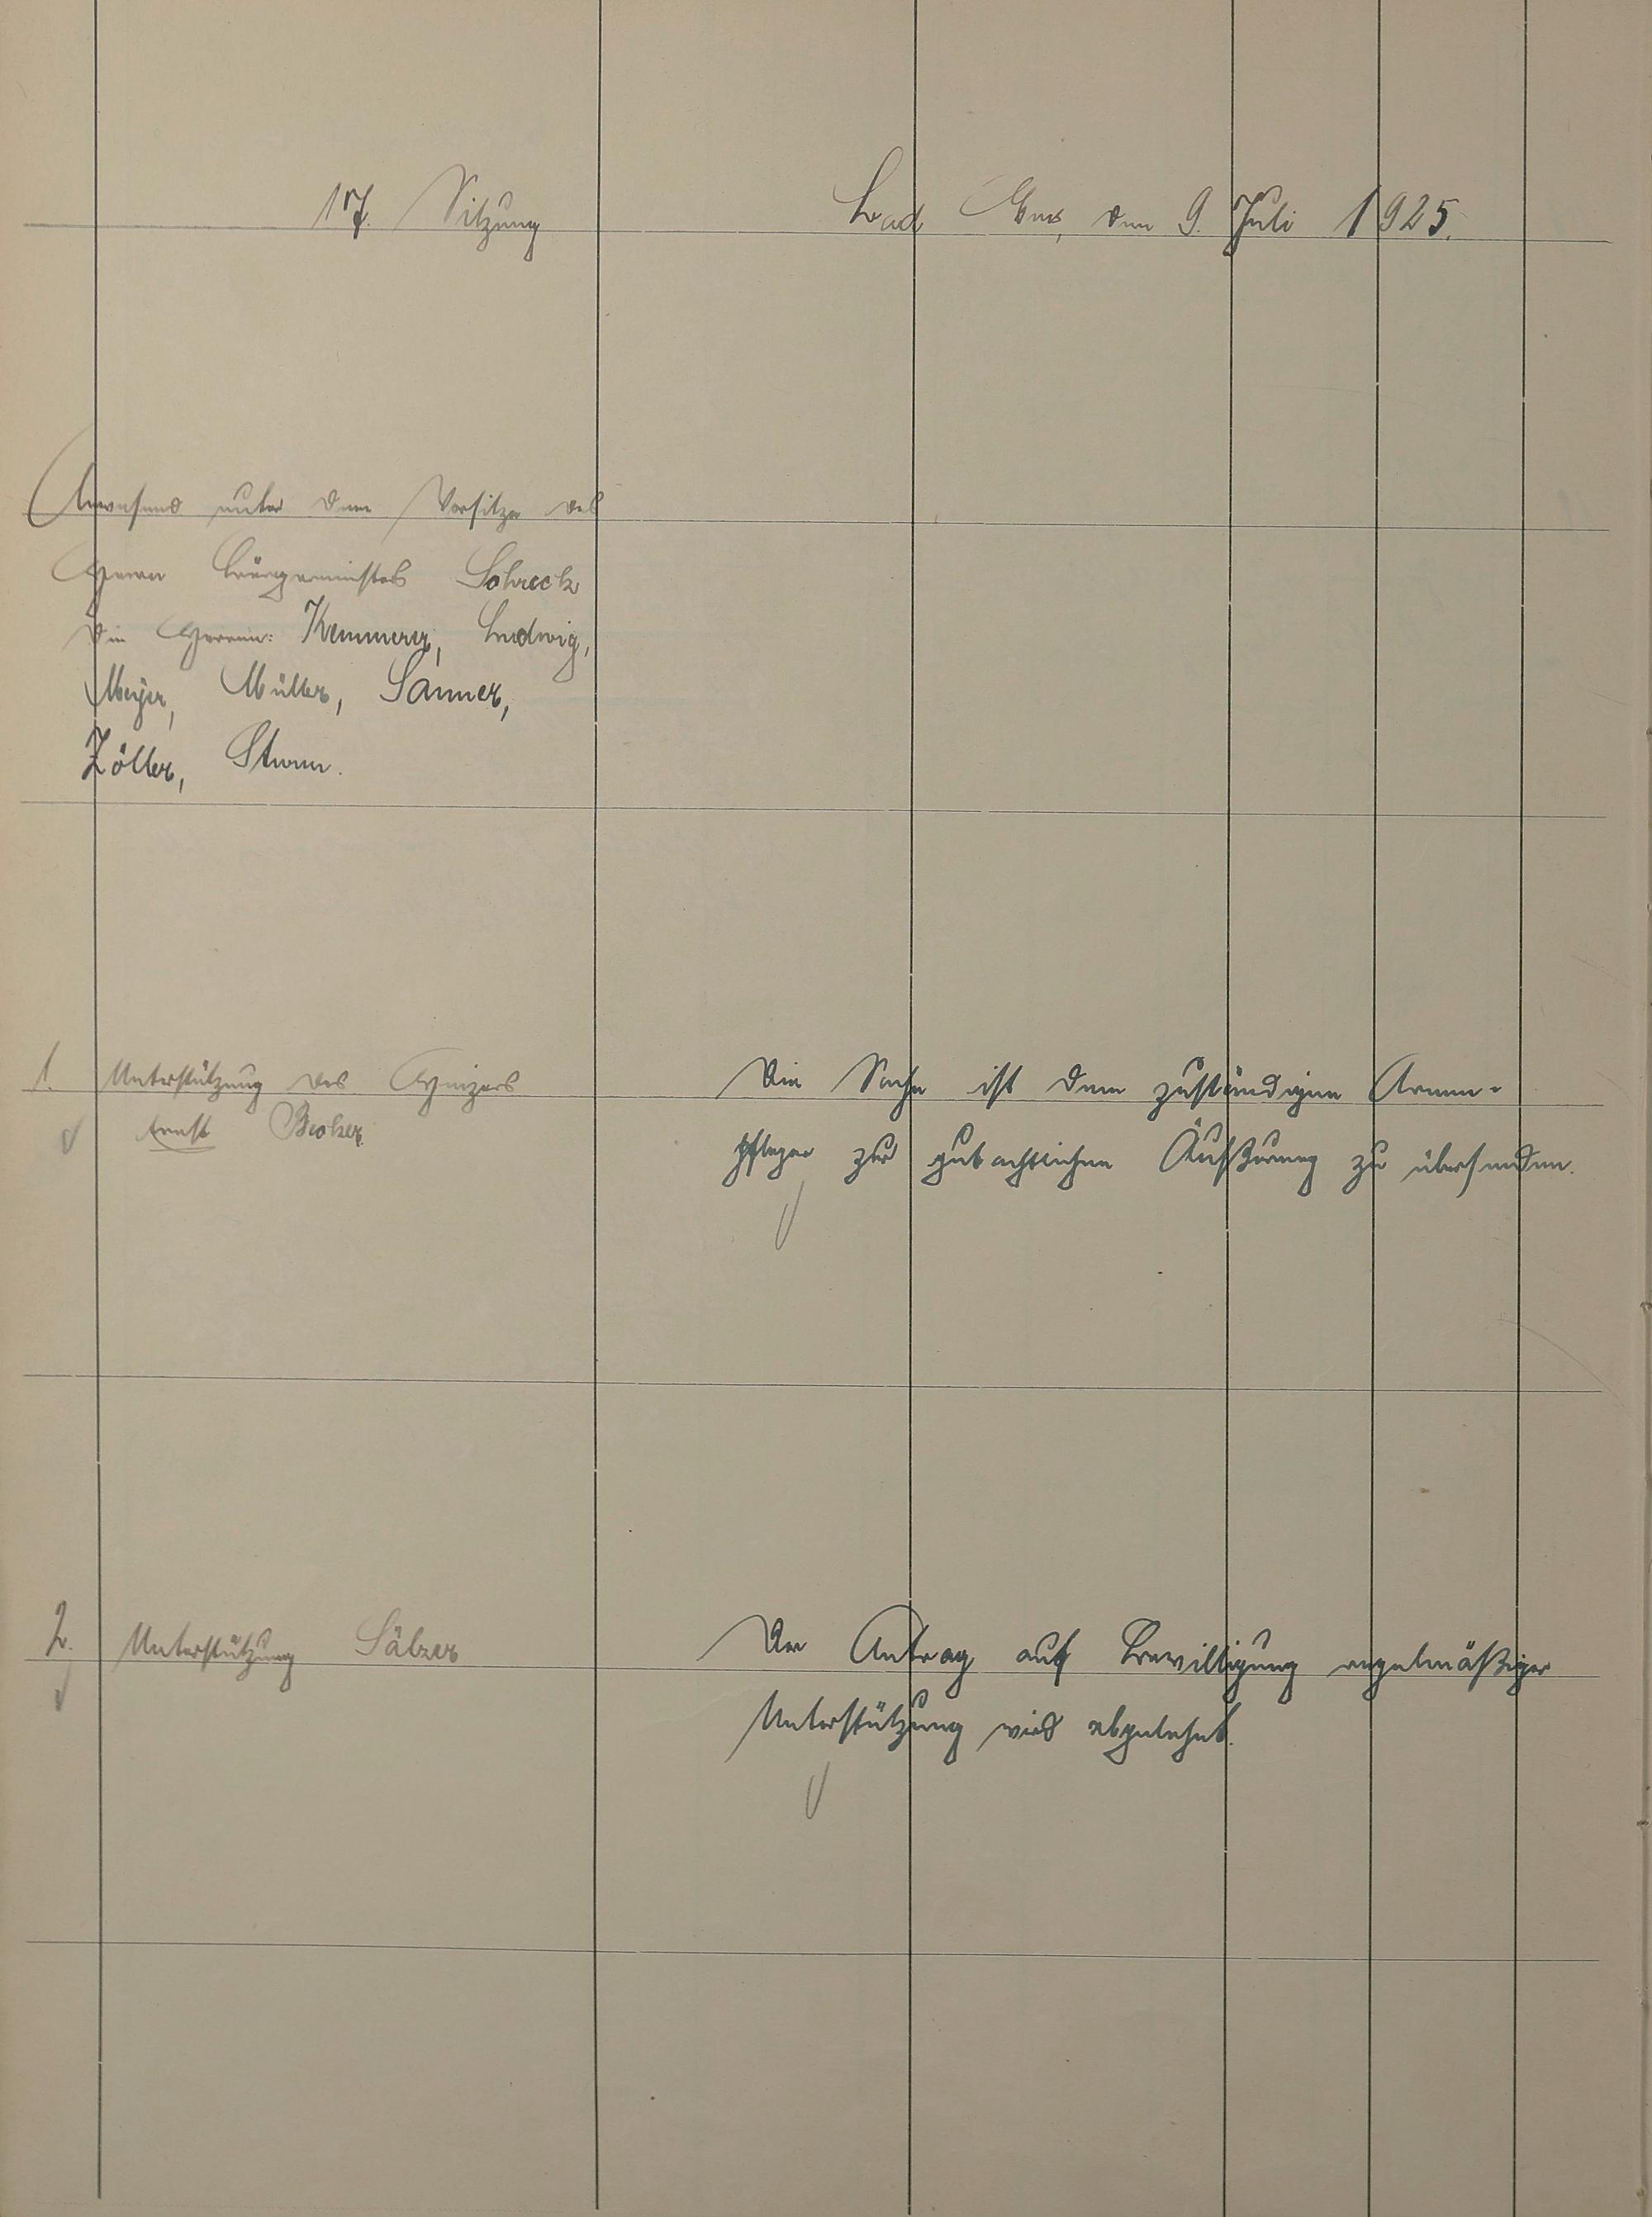 17. Sitzung Bad Ems, den 9. Juli 1925.
Anwesend unter dem Vorsitze des
Herrn Bürgermeisters Schreck
die Herren: Kemmerer, Ludwig,
Meyer, Müller, Sanner,
Zöller, Sturm.
1. Unterstützung des Heizers
Ernst
Die Sache ist dem zuständigen Armen-
pfleger zur gutachtlichen Äußerung zu übersenden.
2. Unterstützung Sälzer
Der Antrag auf Bewilligung regelmäßiger
Unterstützung wird abgelehnt.